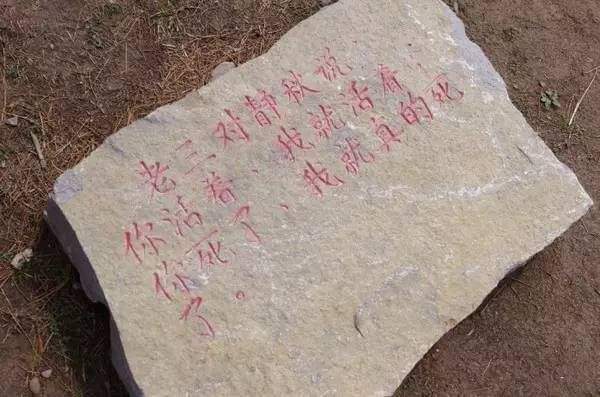 老三对静秋说
你活着、我就活着，
你死了、我就真的死
了。